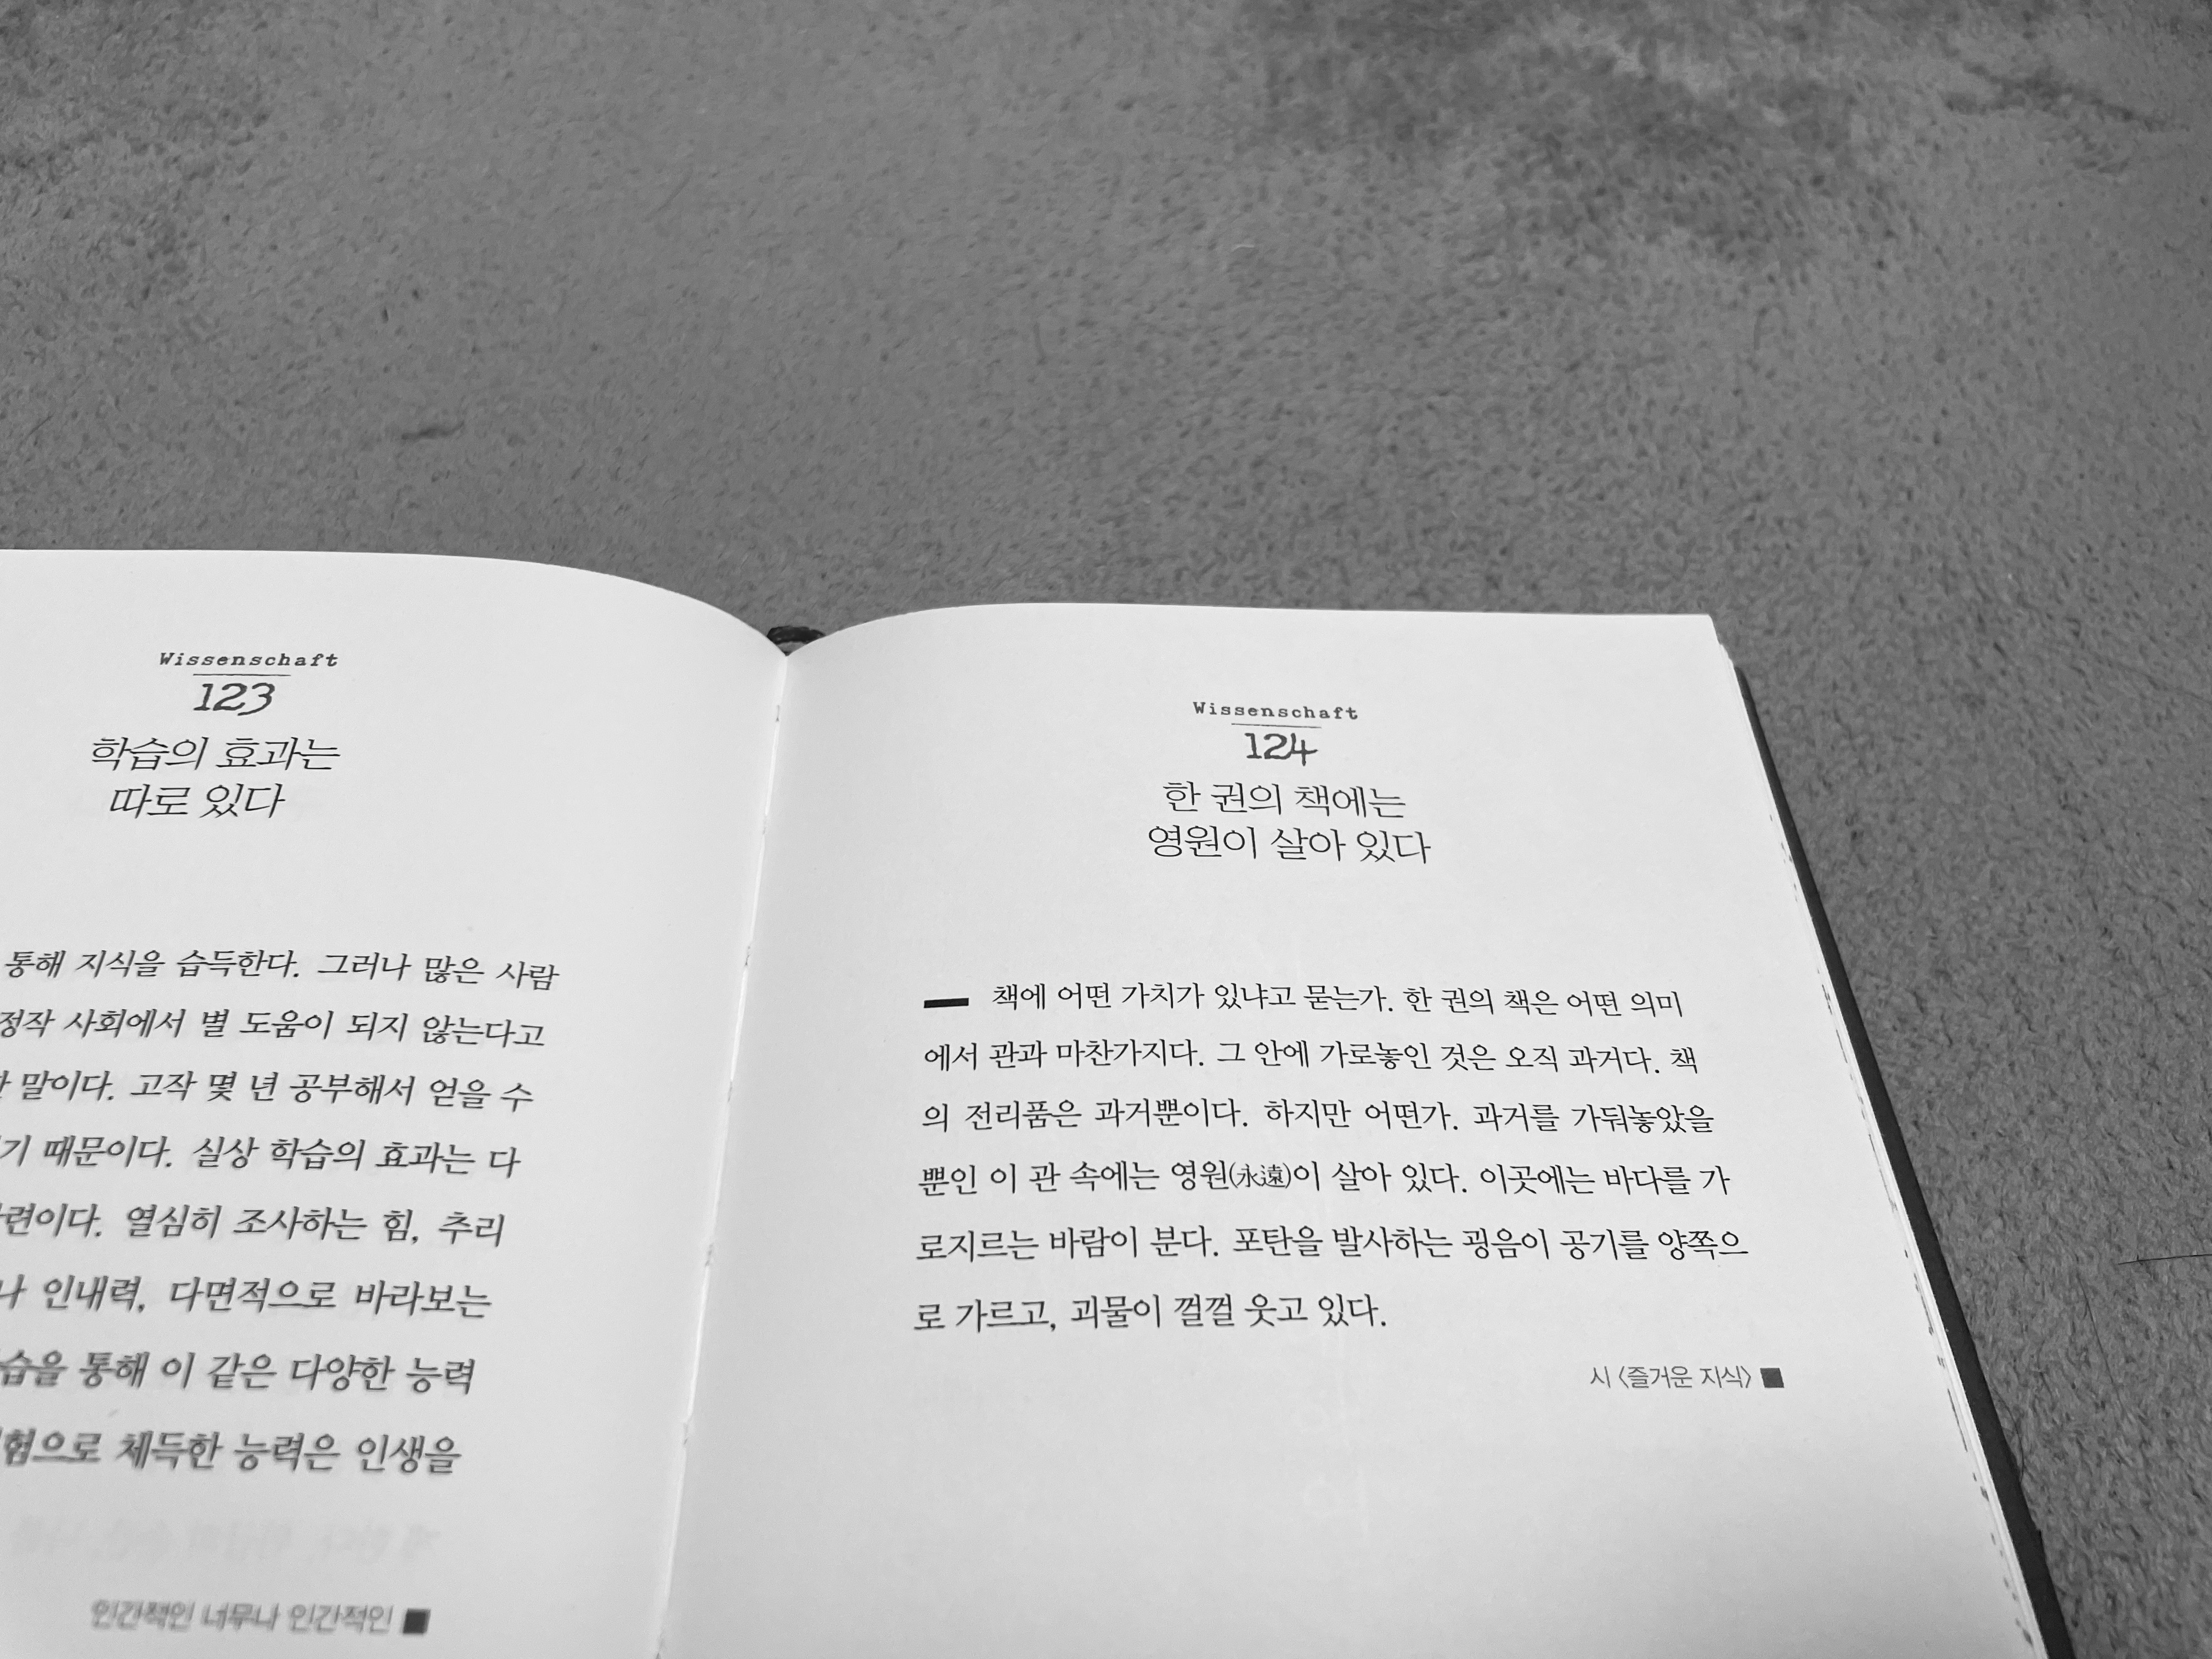 Wissenschaft
123
학습의 효과는
따로 있다
통해 지식을 습득한다. 그러나 많은 사람
정작 사회에서 별 도움이 되지 않는다고
말이다. 고작 몇 년 공부해서 얻을 수
기 때문이다. 실상 학습의 효과는 다
련이다. 열심히 조사하는 힘, 추리
나 인내력, 다면적으로 바라보는
습을 통해 이 같은 다양한 능력
험으로 체득한 능력은 인생을
인간적인 너무나 인간적인
Wissenschaft
124
한 권의 책에는
영원이 살아 있다
책에 어떤 가치가 있냐고 묻는가. 한 권의 책은 어떤 의미
에서 관과 마찬가지다. 그 안에 가로놓인 것은 오직 과거다. 책
의 전리품은 과거뿐이다. 하지만 어떤가. 과거를 가둬놓았을
뿐인 이 관 속에는 영원(永遠)이 살아 있다. 이곳에는 바다를 가
로지르는 바람이 분다. 포탄을 발사하는 굉음이 공기를 양쪽으
로 가르고, 괴물이 껄껄 웃고 있다.
시 〈즐거운 지식〉